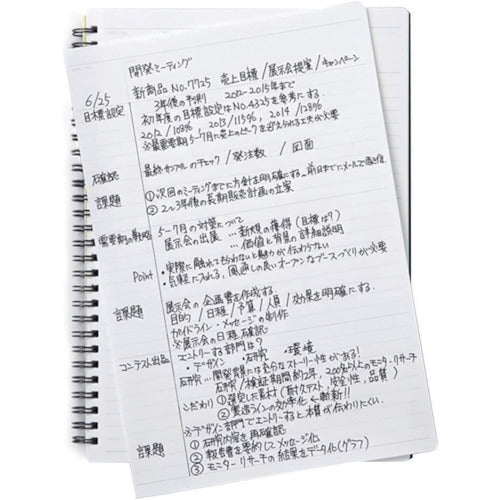 開発ミーティング
新商品 No.7725 売上目標 / 展示会提案 / キャンペーン
6/25 3年後の予測 2012〜2015年まで
目標設定 初年度の目標設定はNo.4325を参考にする。
2012/108% 2013/115% 2014/128%
※最重要期 5〜7月に売上のピークを迎えられる工夫が必要
確認 最終サンプルのチェック / 発注数 / 図面
課題 ①次回のミーティングまでに方針を明確にする。前日までにメールで
②2〜3年後の長期販売計画の立案
需要期の戦略 5〜7月の対策について
展示会の出展 …新規の獲得(目標は?)
…価値と背景の詳細説明
Point ・実際に触れてもらわないと魅力が伝わらない
・気軽に入れる、風通しの良いオープンなブースづくりが必要
課題 展示会の企画書を作成する
目的 / 日程 / 予算 / 人員 / 効果を明確にする。
ガイドライン・メッセージの制作
※展示会の日程確認
コンテスト出品 エントリーする部門は?
・デザイン ・研究 ・環境
研究…開発背景には充分なストーリー性がある!
研究/検証期間約2年、200名以上のモニターリサーチ
こだわり ①選定した素材(耐久テスト、安全性、品質)
②製造ラインの効率化 ←斬新!!
※デザイン部門でエントリーすると本質が伝わりにくい。
課題 ①研究内容を再確認
②報告書を要約してメッセージ化
③モニターリサーチの結果をデータ化(グラフ)